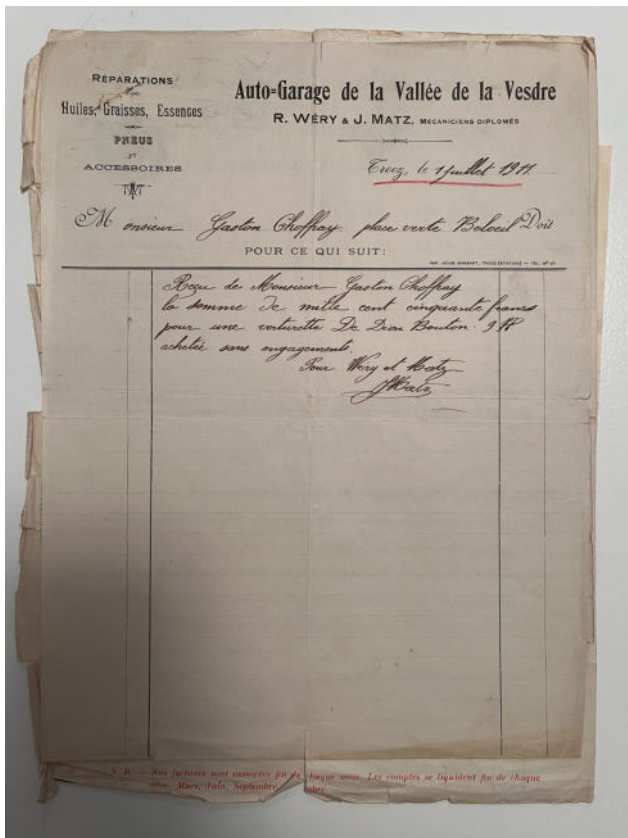 RÉPARATIONS
Huiles, Graisses, Essences
PNEUS
ET
ACCESSOIRES
Auto-Garage de la Vallée de la Vesdre
R. WÉRY & J. MATZ, MÉCANICIENS DIPLOMÉS
Trooz, le 1 juillet 1911.
Monsieur Gaston Choffray place verte Beloeil Doit
POUR CE QUI SUIT:
Reçu de Monsieur Gaston Choffray
la somme de mille cent cinquante francs
pour une voiturette De Dion Bouton. 9 HP
achetée sans engagements.
Pour Wéry et Matz
JMatz
N. B. — Nos factures sont envoyées fin de chaque mois. Les comptes se liquident fin de chaque
Mars, Juin, Septembre